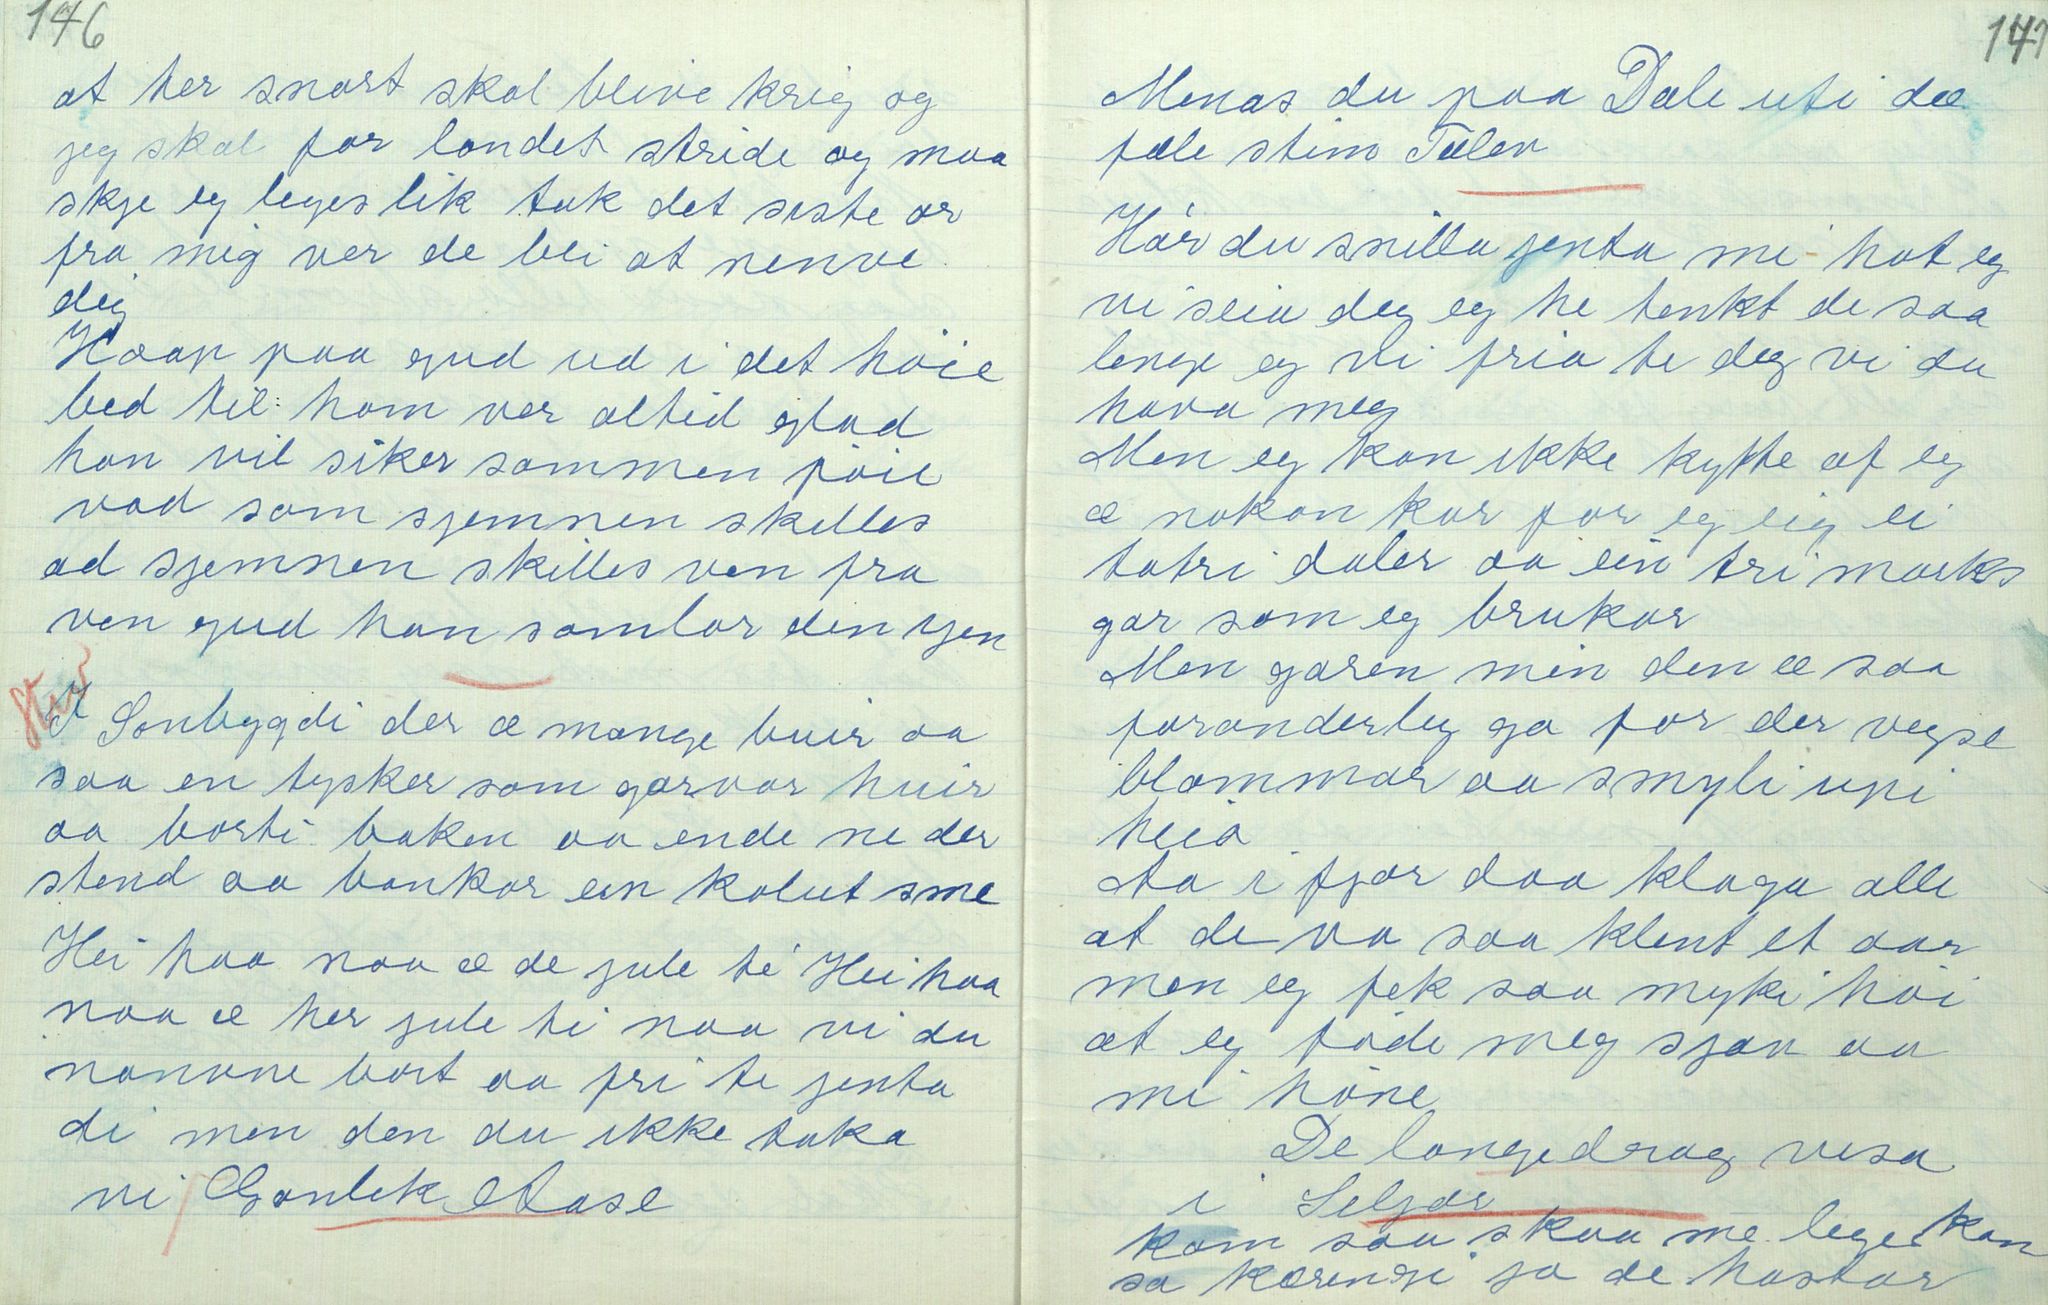 146
at her snart skal blive krig og
jeg skal for landet stride og maa
skje eg leges lik tak det siste or
fra mig ver de bli at nenve
dig
Haap paa gud ud i det høie
bed til ham ver altid glad
han vil siker sammen føie
vad som sjemnen skilles
ad sjemnen skilles ven fra
ven gud han samlar den igen
I Sønbygdi der æ mange buir aa
saa en tysker som garvar huir
aa borti baken aa ende ne der
stend aa bankar ein kalut sme
Hei haa naa æ de jule ti Hei haa
naa æ her jule ti naa vi du
nanvne bort aa fri te jenta
di men den du ikke taka
vi Gonlek Aase
147
Menas du paa Dale uti dæ
fæle stim Tælen
Hør du snilla jenta mi hot eg
vi seia deg eg he tenkt de saa
lenge eg vi fria te deg vi du
hava meg
Men eg kan ikke kytte af eg
æ nokon kar for eg eig ei
totri daler aa ein tri marks
gar som eg brukar
Men garen min den æ saa
foranderleg ga for der vegse
blommar aa smyli upi
heia
Aa i fjor daa klaga alle
at de va saa klent et aar
men eg fek saa myki høi
at eg føde meg sjøv aa
mi høne
De langedrag visa
i Seljor
kom saa skaa me leges kan
sa kærengi ja de hastar